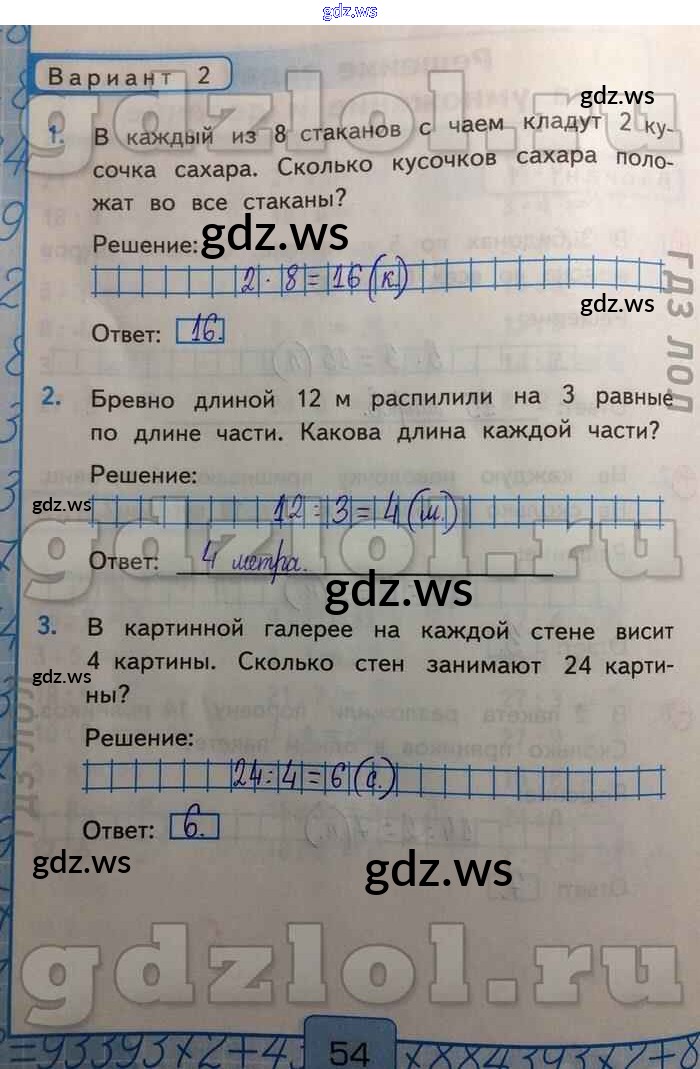 gdz.ws
Вариант 2
gdz.ws
gdzlol.ru
1. В каждый из 8 стаканов с чаем кладут 2 ку-
сочка сахара. Сколько кусочков сахара поло-
жат во все стаканы?
Решение: gdz.ws
2 · 8 = 16 (к.)
gdz.ws
Ответ: 16.
гдз лол
2. Бревно длиной 12 м распилили на 3 равные
по длине части. Какова длина каждой части?
Решение:
gdz.ws
12 : 3 = 4 (м.)
gdzlol.ru
Ответ: 4 метра.
gdz.ws
3. В картинной галерее на каждой стене висит
4 картины. Сколько стен занимают 24 карти-
gdz.ws
ны?
Решение:
24 : 4 = 6 (с.)
гдз лол
Ответ: 6.
gdz.ws
gdz.ws
gdzlol.ru
54